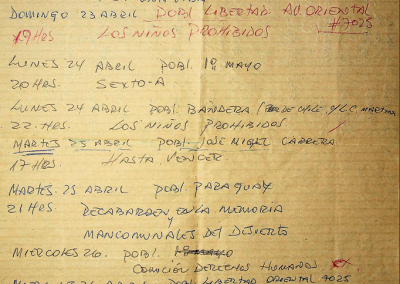 DOMINGO 23 ABRIL POBL LIBERTAD: AV. ORIENTAL
#7025
19 HRS LOS NIÑOS PROHIBIDOS
LUNES 24 ABRIL POBL 1º MAYO
20 HRS. SEXTO-A
LUNES 24 ABRIL POBL BANDERA
22. HRS. LOS NIÑOS PROHIBIDOS
MARTES 25 ABRIL POBL JOSE MIGUEL CARRERA
17 HRS. HASTA VENCER
MARTES. 25 ABRIL POBL PARAGUAY
21 HRS. RECABARREN EN LA MEMORIA
Y
MANCOMUNALES DEL DESIERTO
MIERCOLES 26. POBL.
COMICIÓN DERECHOS HUMANOS
POBL LIBERTAD ORIENTAL 7025